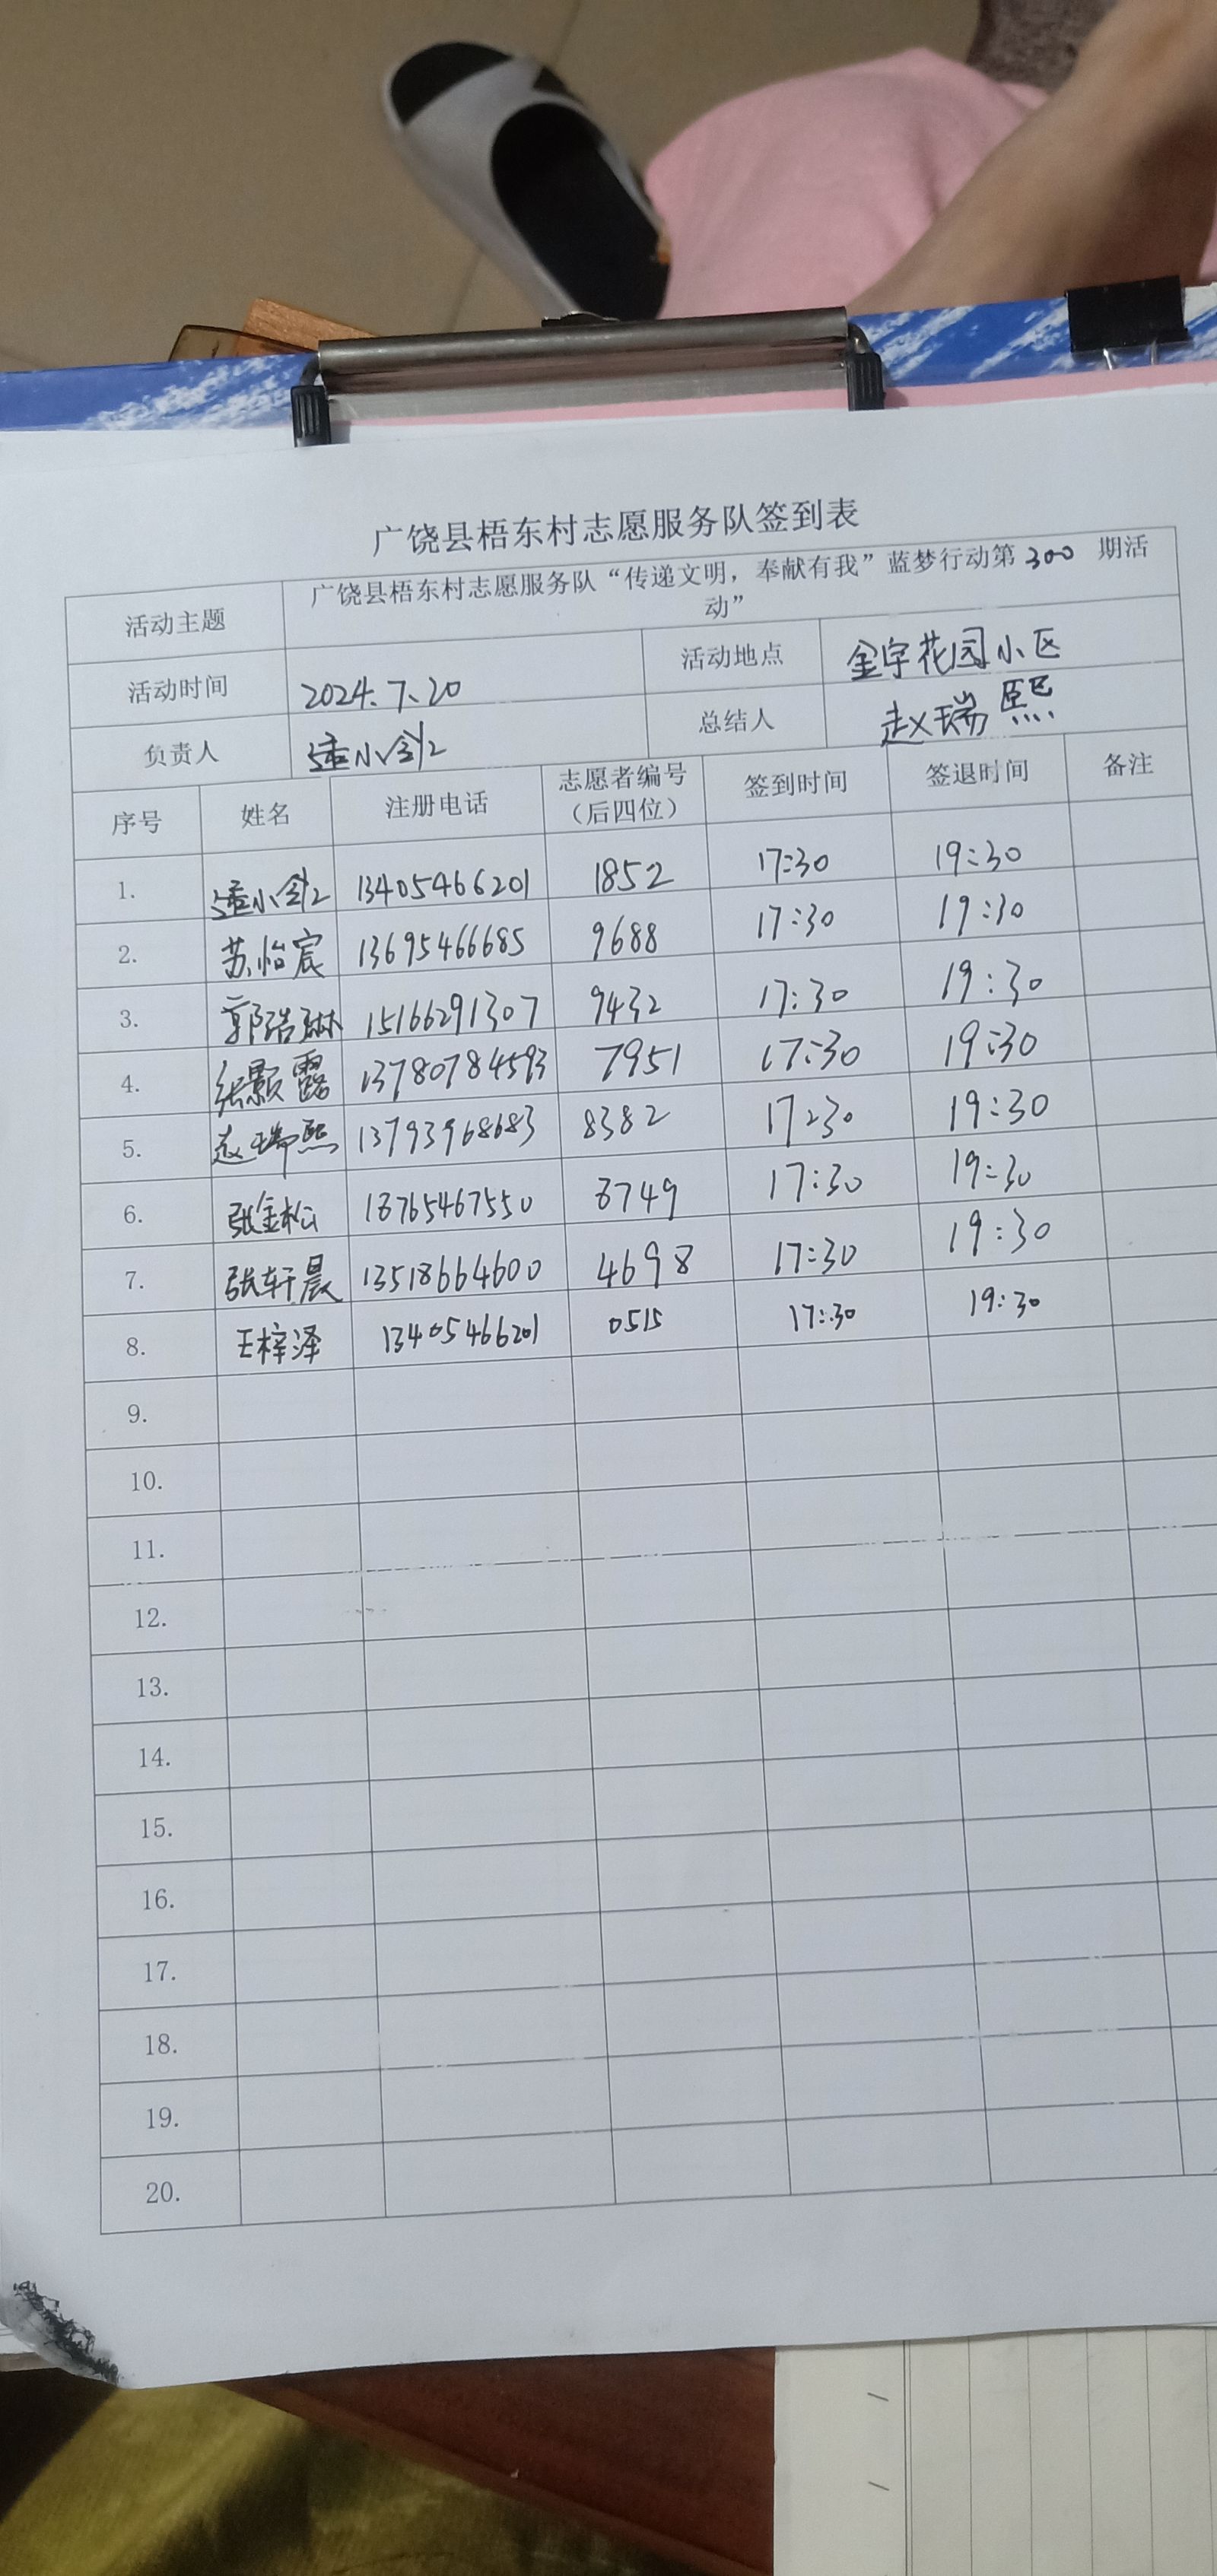 广饶县梧东村志愿服务队签到表
活动主题 广饶县梧东村志愿服务队“传递文明，奉献有我”蓝梦行动第300期活
动”
活动时间 2024.7.20 活动地点 金宇花园小区
负责人 小剑 总结人 赵瑞熙
序号 姓名 注册电话 志愿者编号 签到时间 签退时间 备注
（后四位）
1. 小剑 13405466201 1852 17:30 19:30
2. 苏怡宸 13695466685 9688 17:30 19:30
3. 郭浩琳 15166291307 9432 17:30 19:30
4. 张颢露 13780784593 7951 17:30 19:30
5. 赵瑞熙 13793968683 8382 17:30 19:30
6. 张金松 18765467550 8749 17:30 19:30
7. 张轩晨 13518664600 4698 17:30 19:30
8. 王梓泽 13405466201 0515 17:30 19:30
9.
10.
11.
12.
13.
14.
15.
16.
17.
18.
19.
20.